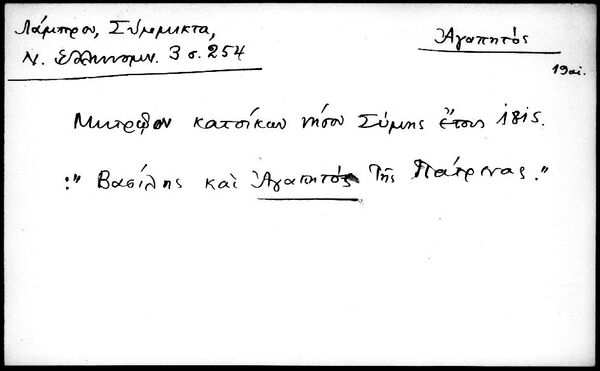 Λάμπρου, Σύμμικτα,
Ν. Ελληνομν. 3 σ. 254
Ἀγαπητός
19 αἰ.
Μητρῷον κατοίκων νήσου Σύμης ἔτους 1815.
:" Βασίλης καὶ Ἀγαπητός τῆς Πάτρινας."